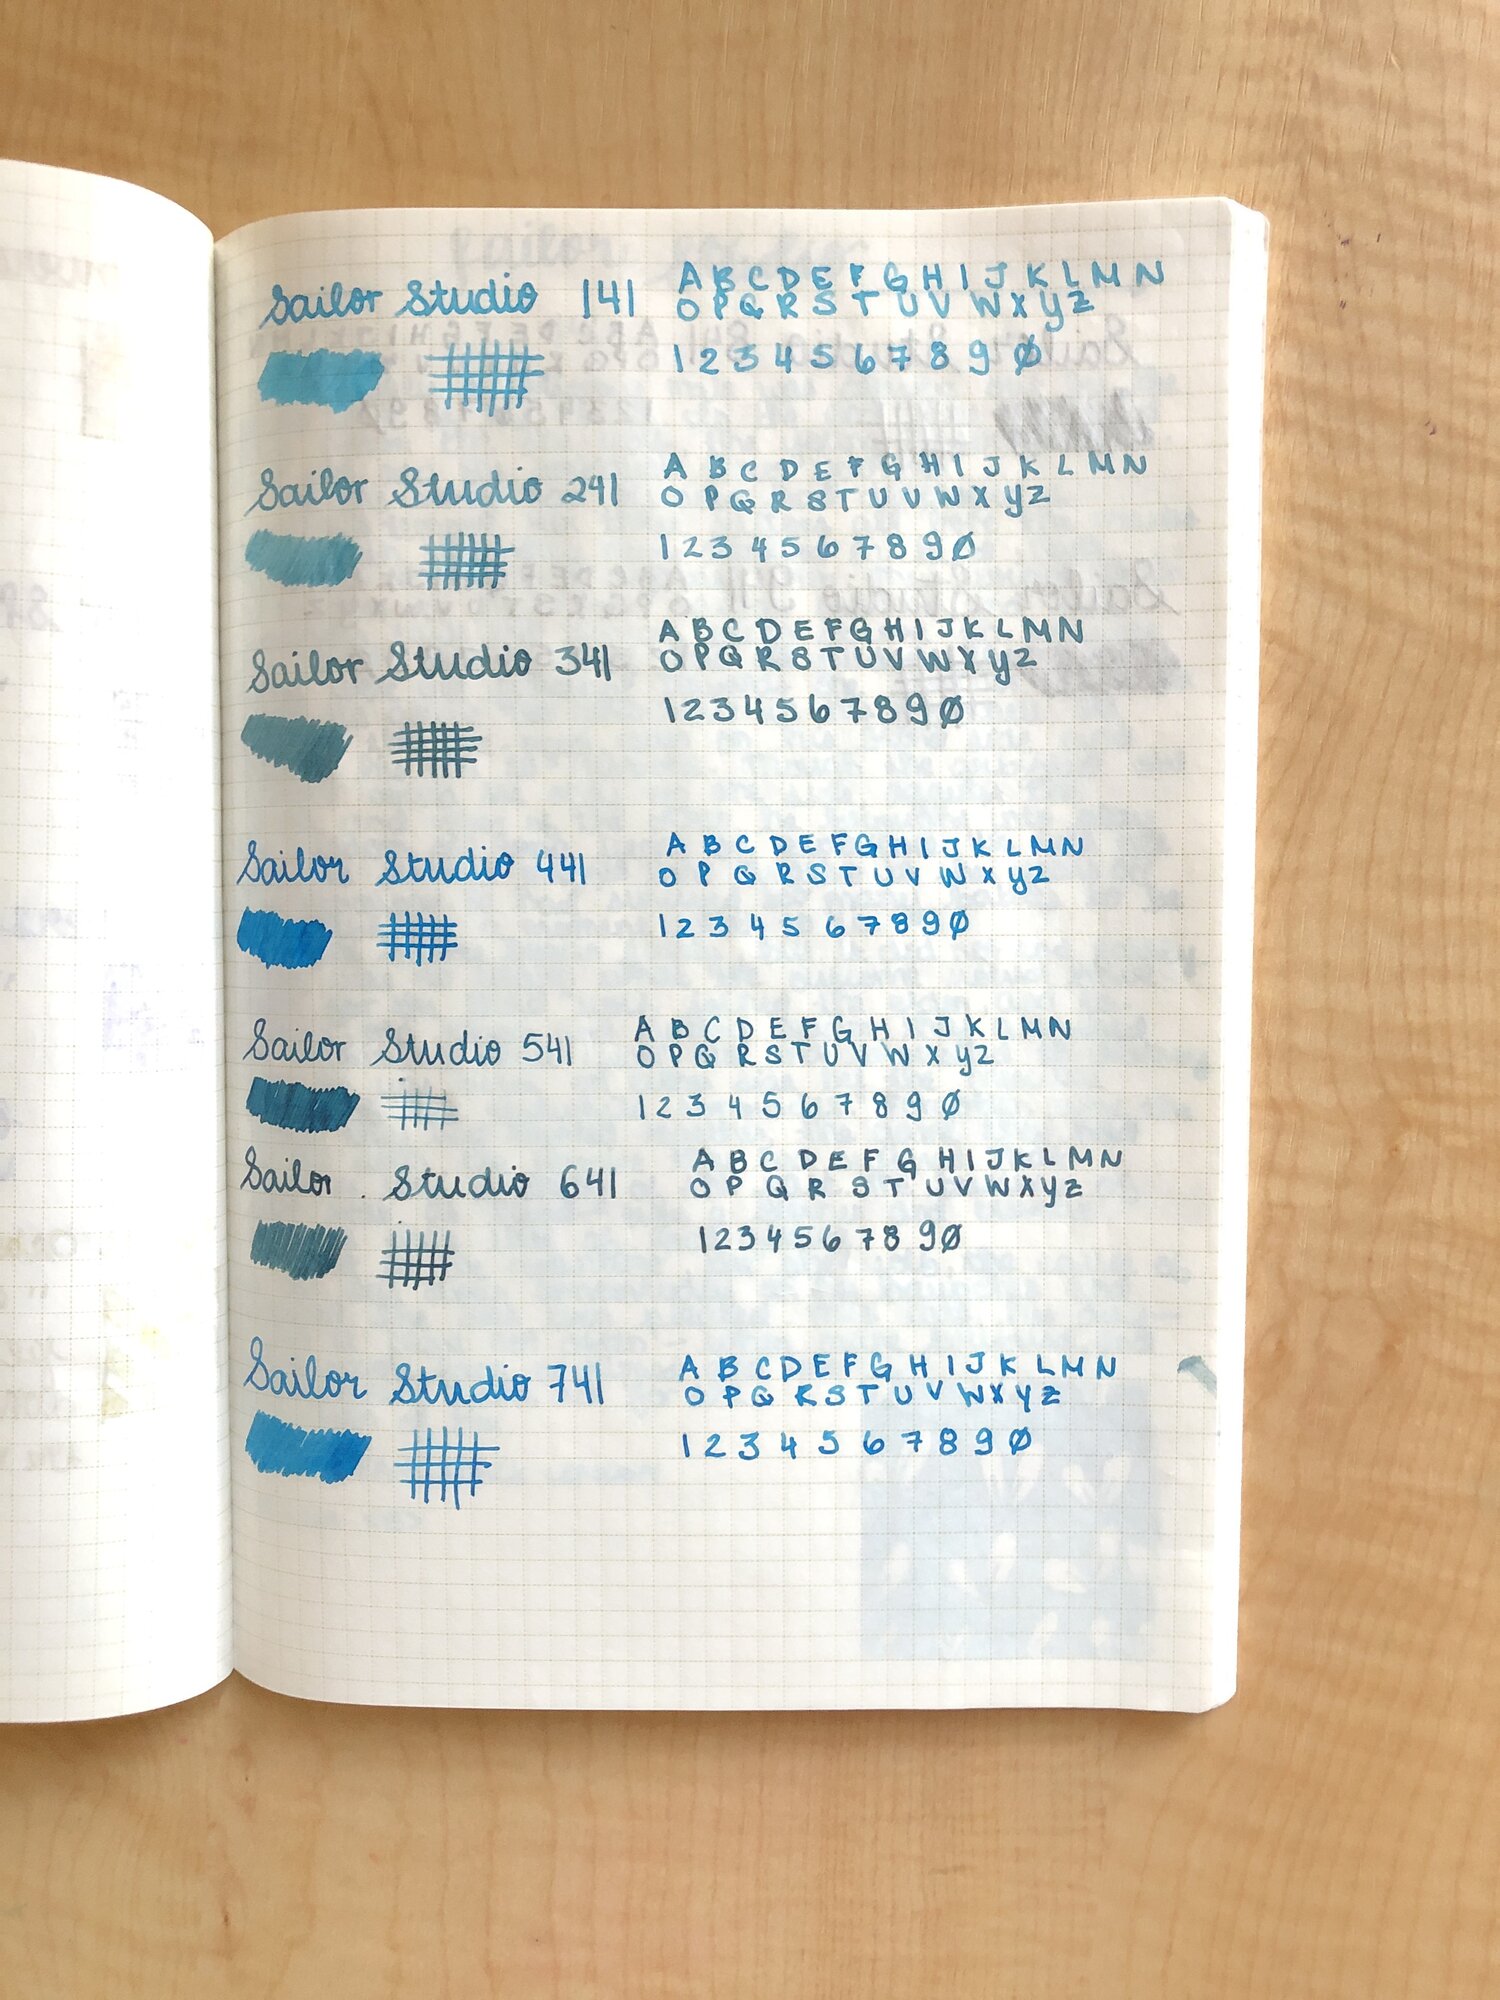 Sailor Studio 141
A B C D E F G H I J K L M N
O P Q R S T U V W X Y Z
1 2 3 4 5 6 7 8 9 0
Sailor Studio 241
A B C D E F G H I J K L M N
O P Q R S T U V W X Y Z
1 2 3 4 5 6 7 8 9 0
Sailor Studio 341
A B C D E F G H I J K L M N
O P Q R S T U V W X Y Z
1 2 3 4 5 6 7 8 9 0
Sailor Studio 441
A B C D E F G H I J K L M N
O P Q R S T U V W X Y Z
1 2 3 4 5 6 7 8 9 0
Sailor Studio 541
A B C D E F G H I J K L M N
O P Q R S T U V W X Y Z
1 2 3 4 5 6 7 8 9 0
Sailor Studio 641
A B C D E F G H I J K L M N
O P Q R S T U V W X Y Z
1 2 3 4 5 6 7 8 9 0
Sailor Studio 741
A B C D E F G H I J K L M N
O P Q R S T U V W X Y Z
1 2 3 4 5 6 7 8 9 0